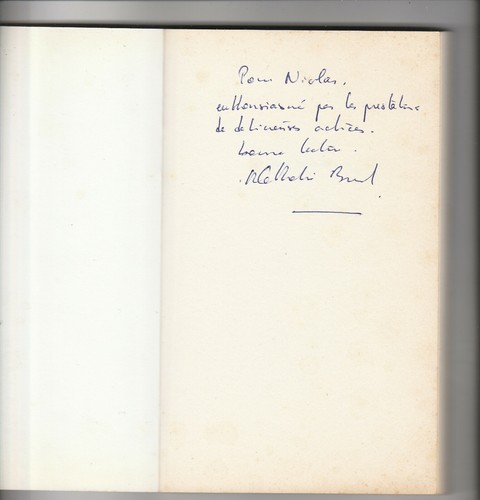 Pour Nicolas,
enthousiasmé par les prestations
de délicieuses actrices.
bonne lecture.
Nathalie